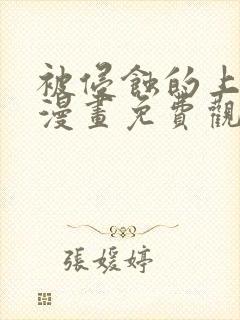 被侵蝕的上
漫畫免費觀
張媛婷